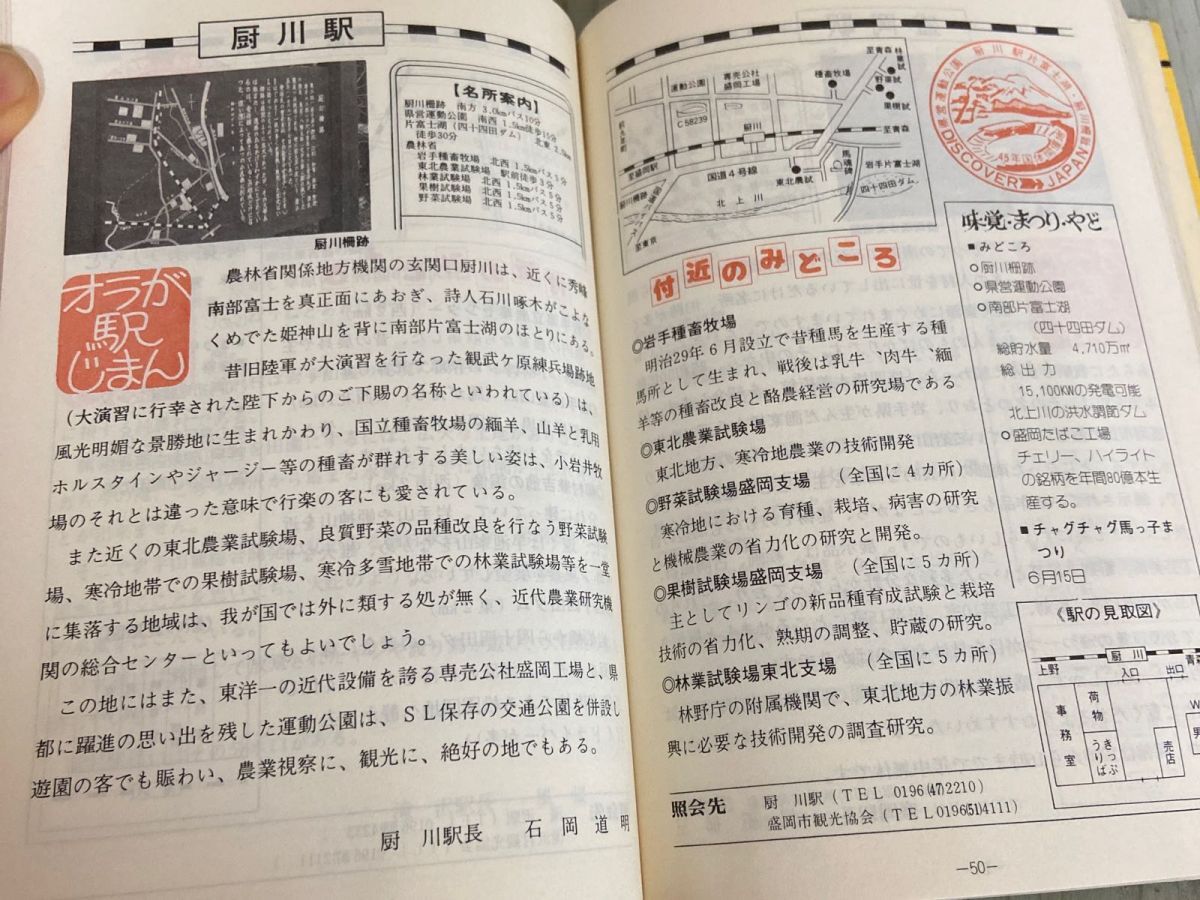 厨川駅
【名所案内】
厨川柵跡　南方 3.0kmバス10分
県営運動公園　南西 1.5km徒歩15分
片富士湖（四十四田ダム）　北東 2.5km
徒歩30分
農林省
岩手種畜牧場　北西 1.5kmバス5分
東北農業試験場　駅前徒歩3分
林業試験場　北西 1.5kmバス5分
果樹試験場　北西 1.5kmバス5分
野菜試験場　北西 1.5kmバス5分
厨川柵跡
オラが
駅
じまん
農林省関係地方機関の玄関口厨川は、近くに秀峰
南部富士を真正面にあおぎ、詩人石川啄木がこよな
くめでた姫神山を背に南部片富士湖のほとりにある。
昔旧陸軍が大演習を行なった観武ケ原練兵場跡地
（大演習に行幸された陛下からのご下賜の名称といわれている）は、
風光明媚な景勝地に生まれかわり、国立種畜牧場の緬羊、山羊と乳用
ホルスタインやジャージー等の種畜が群れする美しい姿は、小岩井牧
場のそれとは違った意味で行楽の客にも愛されている。
また近くの東北農業試験場、良質野菜の品種改良を行なう野菜試験
場、寒冷地帯での果樹試験場、寒冷多雪地帯での林業試験場等を一堂
に集落する地域は、我が国では外に類する処が無く、近代農業研究機
関の総合センターといってもよいでしょう。
この地にはまた、東洋一の近代設備を誇る専売公社盛岡工場と、県
都に躍進の思い出を残した運動公園は、ＳＬ保存の交通公園を併設し
遊園の客でも賑わい、農業視察に、観光に、絶好の地でもある。
厨　川駅長　石　岡　道　明
至青森
林業試
野菜試
果樹試
種畜牧場
専売公社
盛岡工場
運動公園
C 58239
厨川
至青森
至盛岡駅
国道４号線
東北農試
馬魂碑
岩手片富士湖
四十四田ダム
厨川柵跡
北上川
至東京
県営運動公園　厨川駅　片富士湖・厨川柵跡
45年国体
DISCOVER JAPAN
付近のみどころ
◎岩手種畜牧場
明治29年６月設立で昔種馬を生産する種
馬所として生まれ、戦後は乳牛、肉牛、緬
羊等の種畜改良と酪農経営の研究場である
◎東北農業試験場
東北地方、寒冷地農業の技術開発
◎野菜試験場盛岡支場　（全国に４カ所）
寒冷地における育種、栽培、病害の研究
と機械農業の省力化の研究と開発。
◎果樹試験場盛岡支場　（全国に５カ所）
主としてリンゴの新品種育成試験と栽培
技術の省力化、熟期の調整、貯蔵の研究。
◎林業試験場東北支場　（全国に５カ所）
林野庁の附属機関で、東北地方の林業振
興に必要な技術開発の調査研究。
味覚・まつり・やど
■みどころ
○厨川柵跡
○県営運動公園
○南部片富士湖
（四十四田ダム）
総貯水量　4,710万㎥
総出力
15,100KWの発電可能
北上川の洪水調節ダム
○盛岡たばこ工場
チェリー、ハイライト
の銘柄を年間80億本生
産する。
■チャグチャグ馬っ子ま
つり
６月15日
《駅の見取図》
上野
厨川
青森
入口
出口
事務室
荷物
きっぷ
うりば
売店
W
男
照会先
厨　川駅（ＴＥＬ 0196(47)2210）
盛岡市観光協会（ＴＥＬ0196(51)4111）
—50—